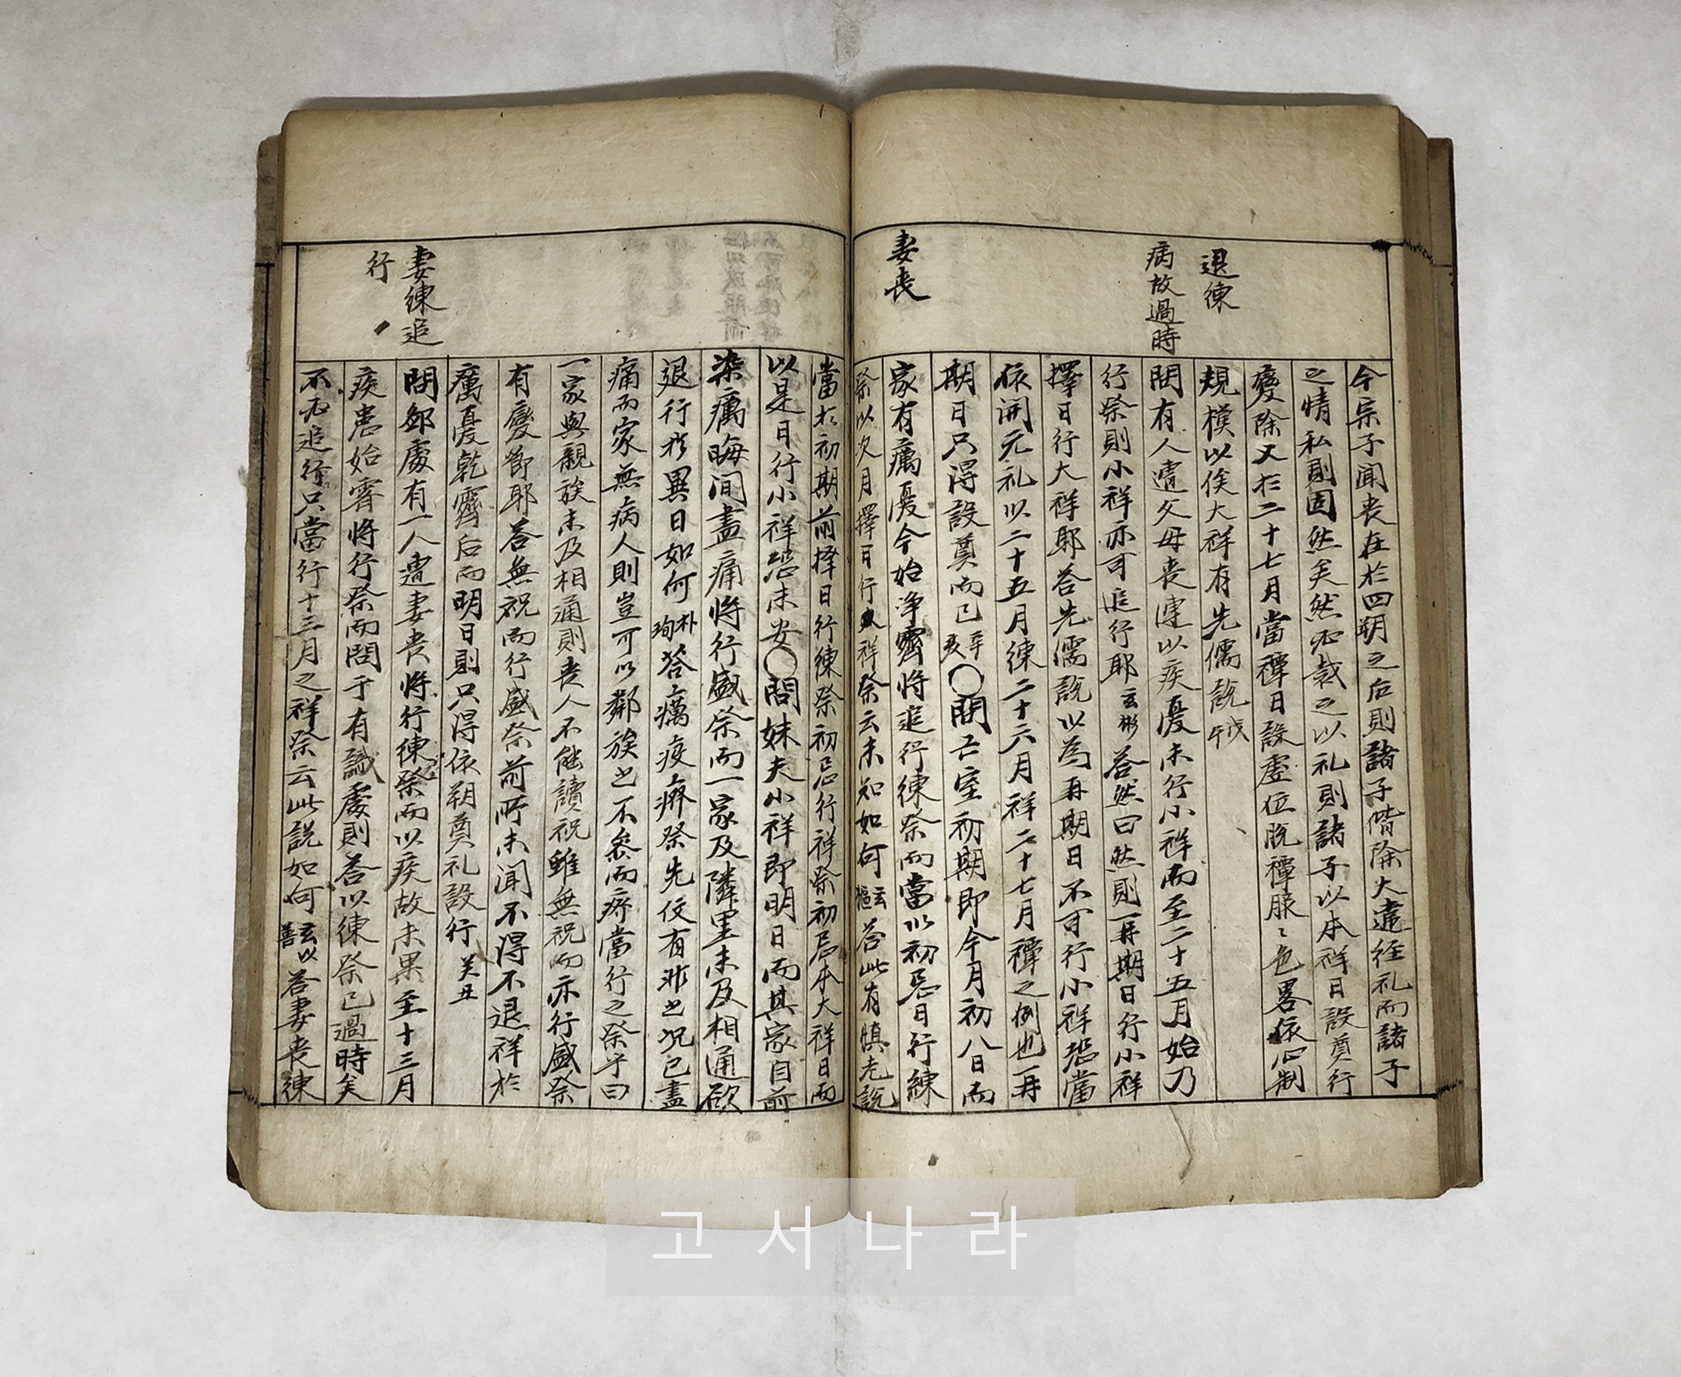 退練
病故過時
妻喪
今宗子聞喪在於四朔之后則諸子偕除大違經礼而諸子
之情私則固然矣然必裁之以礼則諸子以本祥日設奠行
變除又於二十七月當禫日設虛位脫禫服〻色畧依心制
規模以俟大祥有先儒說戊午
問有人遭父母喪連以疾憂未行小祥而至二十五月始乃
行祭則小祥亦可追行耶玄彬答然曰然則再期日行小祥
擇日行大祥耶答先儒說以為再期日不可行小祥恐當
依開元礼以二十五月練二十六月祥二十七月禫之例也再
期日只得設奠而已辛亥〇問亡室初期即今月初八日而
家有癘憂今始净齋將追行練祭而當以初忌日行練
祭以次月擇日行大祥祭云未知如何玄樞答此有慎老說
妻練追
行
當於初期前擇日行練祭初忌行祥祭初忌本大祥日而
以是日行小祥恐未安〇問妹夫小祥即明日而其家自前
染癘晦间盡痛將行盛祭而一家及隣里未及相通欲
退行於異日如何朴珣答癘疫癈祭先伎有非之况已盡
痛而家無病人則豈可以鄰族之不叅而廢當行之祭乎曰
一家與親族未及相通則喪人不能讀祝雖無祝而亦行盛祭
有變節耶答無祝而行盛祭前所未聞不得不退祥於
癘憂乾齋后而明日則只得依朔奠礼設行癸丑
問鄉處有一人遭妻喪將行練祭而以疾故未果至十三月
疾患始霽將行祭而問于有識處則答以練祭已過時矣
不必追行只當行十三月之祥祭云此說如何玄以善答妻喪練
고서나라